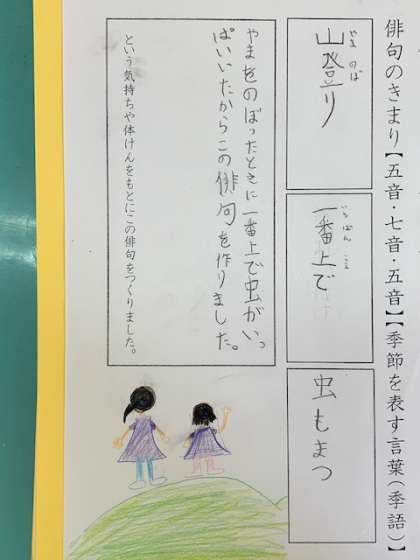 俳句のきまり【五音・七音・五音】【季節を表す言葉(季語)】
山登り
やま のぼ
一番上で
いち ばん うえ
虫もまつ
やまをのぼったときに一番上で虫がいっ
ぱいいたからこの俳句を作りました。
という気持ちや体けんをもとにこの俳句をつくりました。